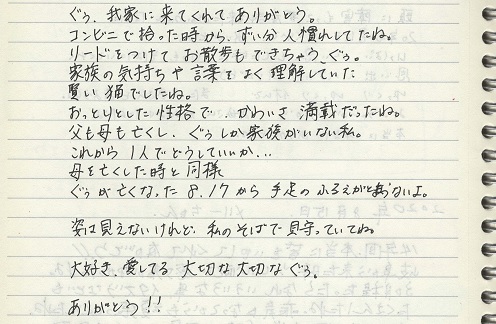 ぐぅ、我家に来てくれてありがとう。
コンビニで拾った時から、ずい分人慣れしてたね。
リードをつけてお散歩もできちゃうぐぅ。
家族の気持ちや言葉をよく理解していた
賢い猫でしたね。
おっとりとした性格でかわいさ満載だったね。
父も母も亡くし、ぐぅしか家族がいない私。
これから1人でどうしていいか…
母を亡くした時と同様
ぐぅが亡くなった8.17から手足のふるえが止まらないよ。
姿は見えないけれど、私のそばで見守っていてね。
大好き、愛してる 大切な大切なぐぅ。
ありがとう!!